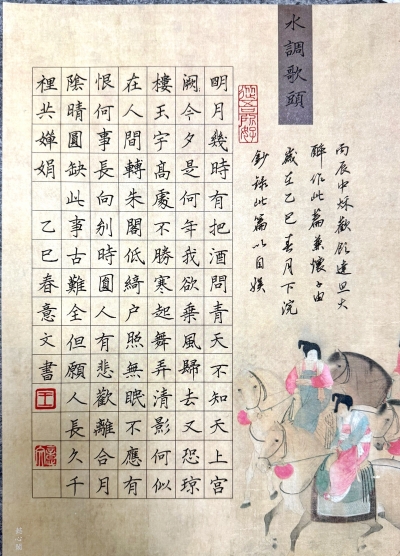 水調歌頭
丙辰中秌歡飲達旦大
醉作此篇兼懷子由
歲在乙巳春月下浣
鈔錄此篇以自娛
明月幾時有把酒問青天不知天上宮
闕今夕是何年我欲乗風歸去又恐琼
樓玉宇高處不勝寒起舞弄清影何似
在人間轉朱閣低綺户照無眠不應有
恨何事長向别時圓人有悲歡離合月
陰晴圓缺此事古難全但願人長久千
裡共嬋娟 乙巳春意文書
王